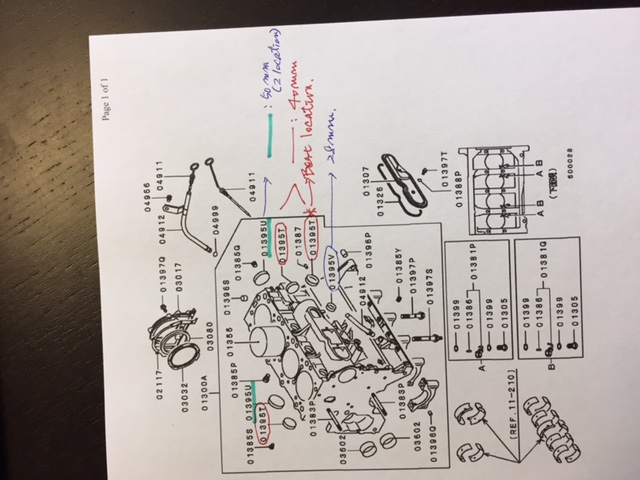 Page 1 of 1
: 50 mm
(2 location)
: 40 mm
→ Best location.
28 mm.
04956
04911
04912
04999
04911
01307
01326
01397T
01388P
600028
(下面視)
A B
A B
01397Q
03017
03080
02117
03032
01300A
01385Q
01396S
01395U
01395T
01387
01395T
01395V
01396P
01355
01385P
01395U
01395T
01385S
01383P
04912
01385Y
01397P
01397S
01383P
03602
03602
01396Q
01381P
01399
01386
01399
01305
A
01381Q
01399
01386
01399
01305
B
(REF. 11-210)